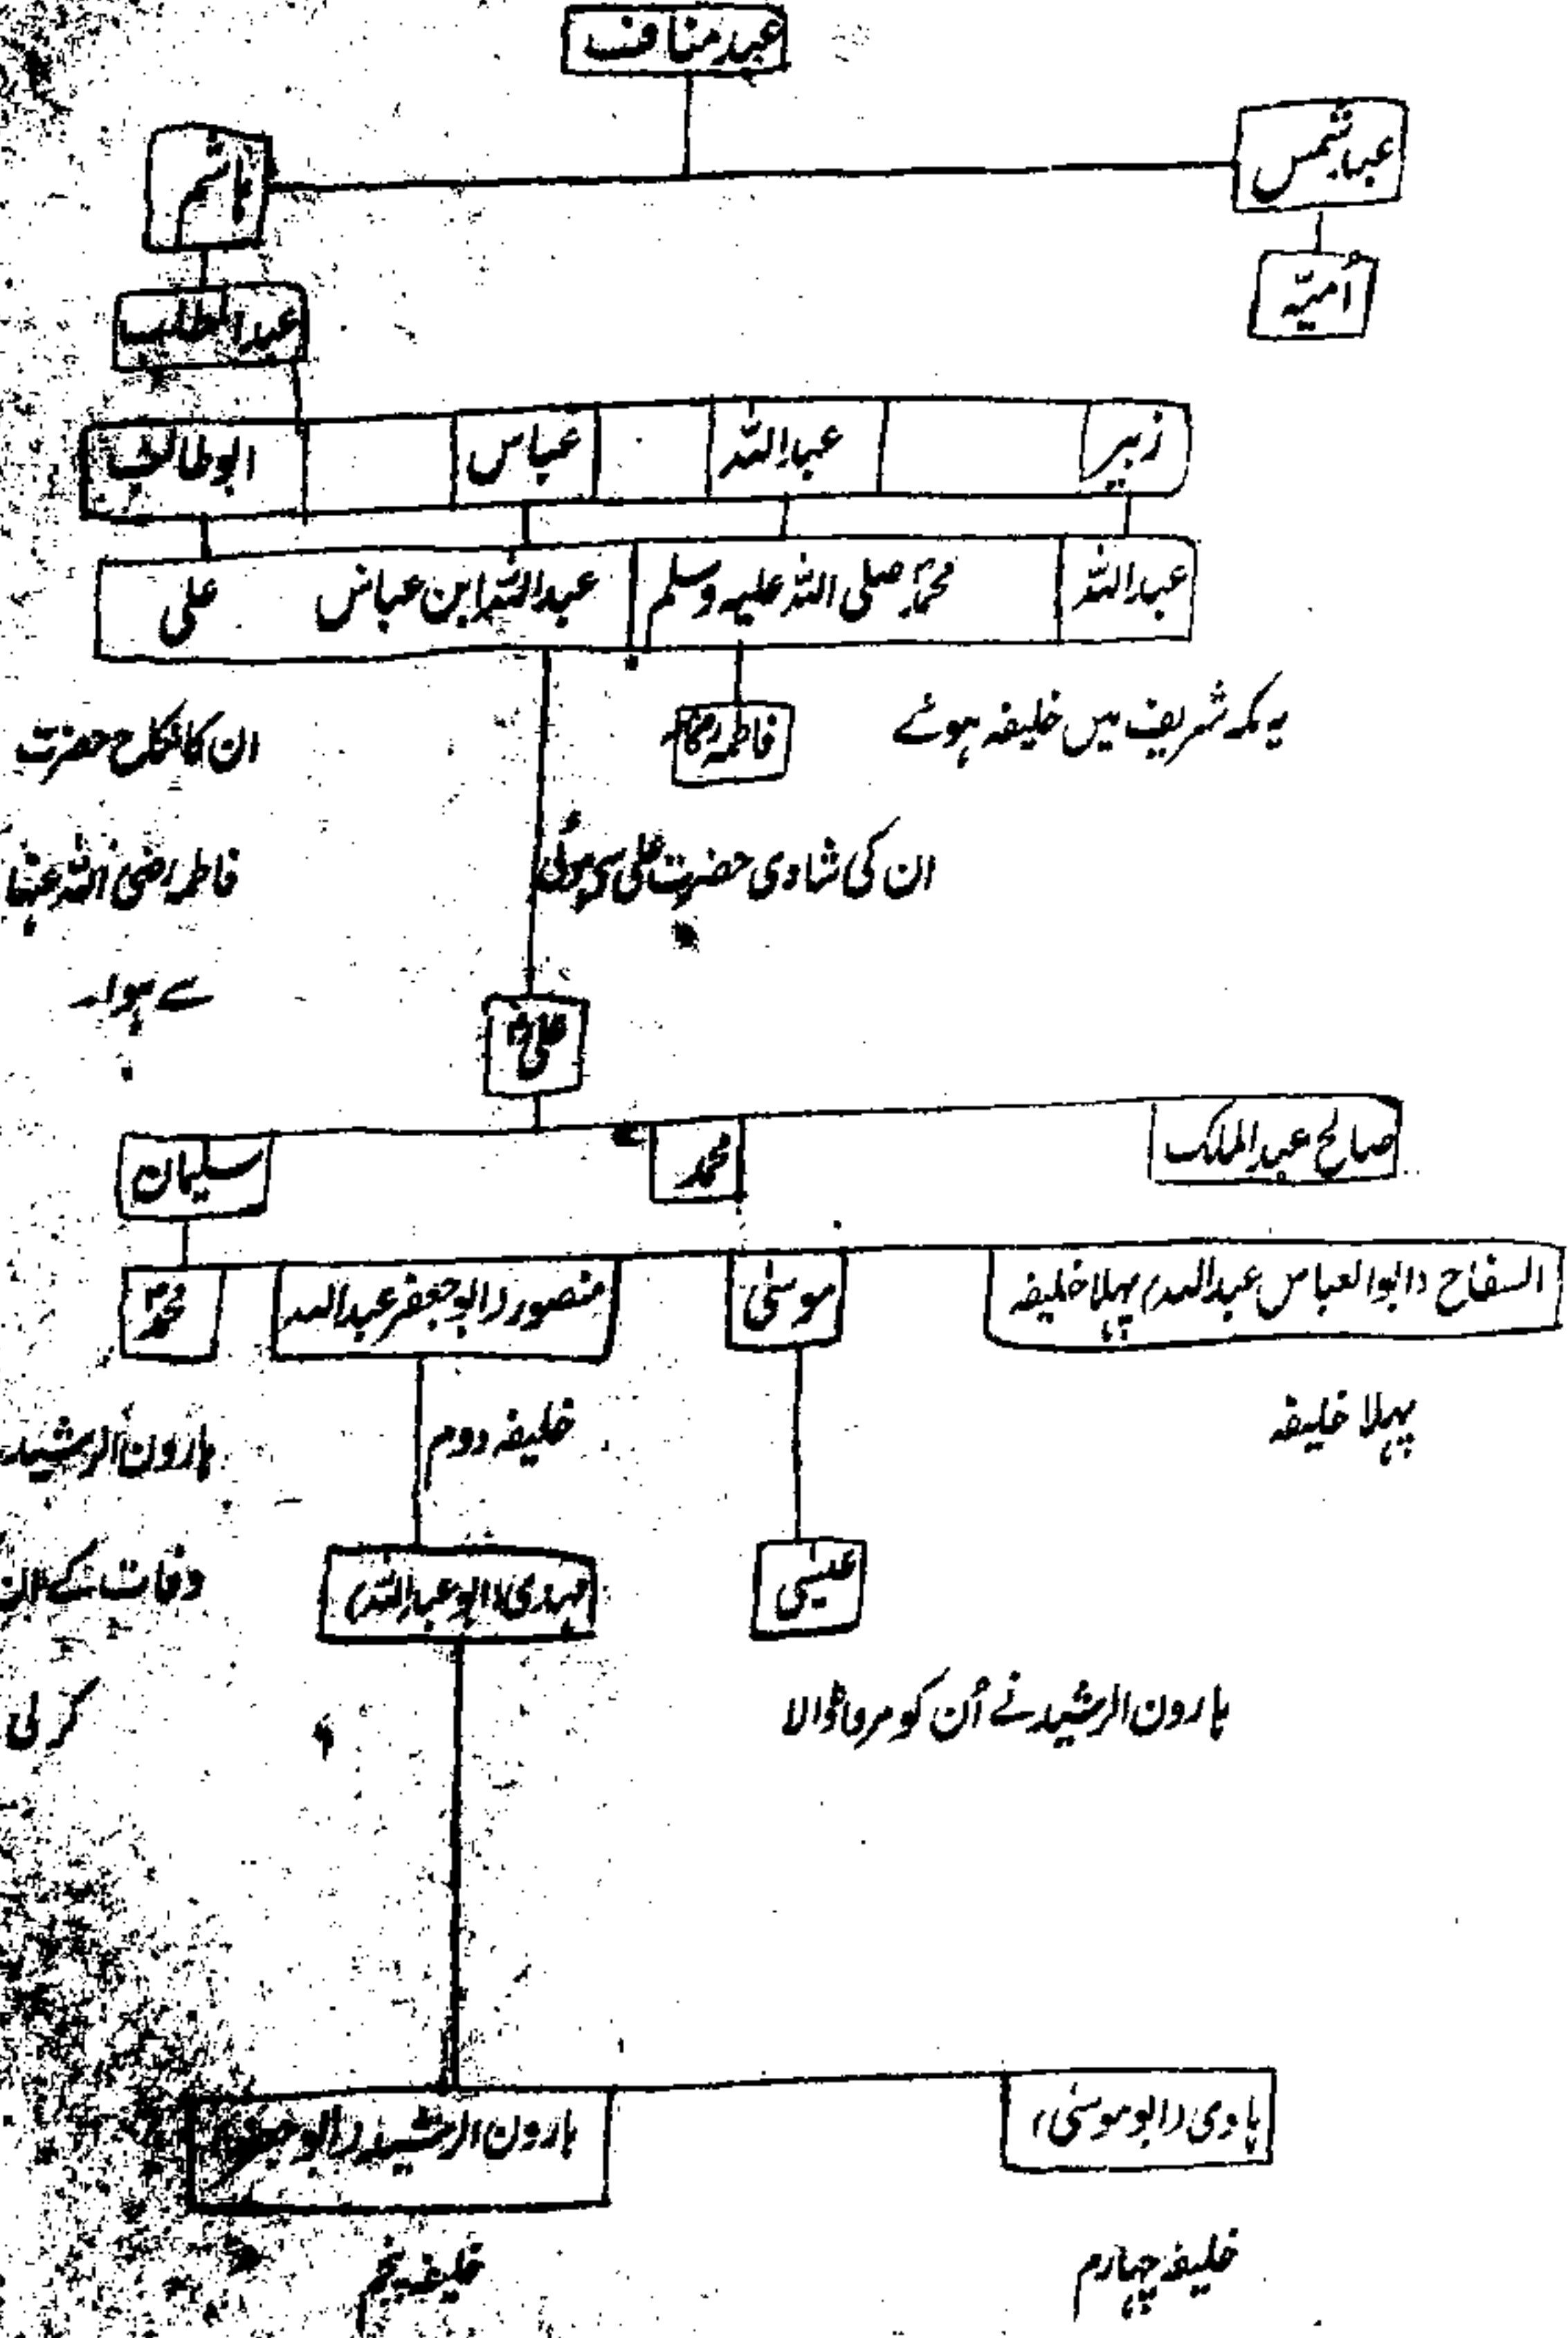 عبد مناف
عبد شمس
ہاشم
اُمیّہ
عبد المطلب
زبیر عبد اللہ عباس ابو طالب
عبد اللہ محمد صلی اللہ علیہ وسلم عبد اللہ ابن عباس علی
یہ مکہ شریف میں خلیفہ ہوئے فاطمہ ان کا نکاح حضرت
ان کی شادی حضرت علی سے ہوئی فاطمہ رضی اللہ عنہا
سے ہوا۔
علی
صالح عبد الملک محمد سلیمان
السفاح (ابو العباس عبد اللہ) پہلا خلیفہ موسیٰ منصور (ابو جعفر عبد اللہ محمد
پہلا خلیفہ خلیفہ دوم ہارون الرشید
عیسیٰ مہدی (ابو عبد اللہ) وفات کے
ہارون الرشید نے اُن کو مروا ڈالا کرلی
ہادی (ابو موسیٰ) ہارون الرشید (ابو جعفر
خلیفہ چہارم خلیفہ پنجم